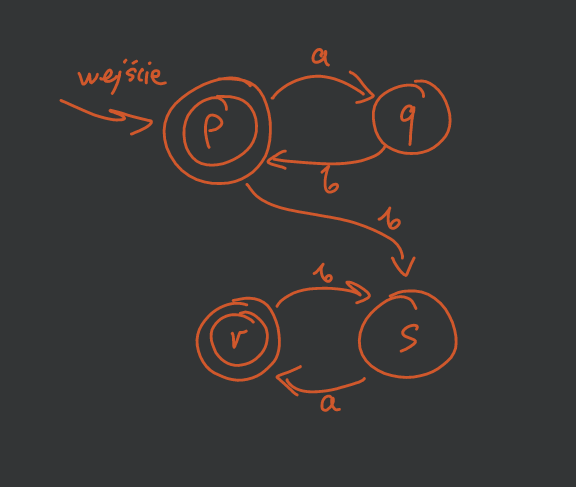 a
wejście
p
q
b
b
b
r
s
a